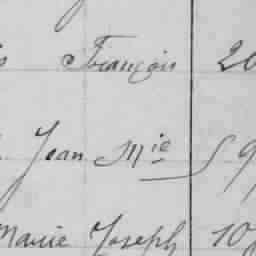 François 20
Jean Mie 59
Marie Joseph 10